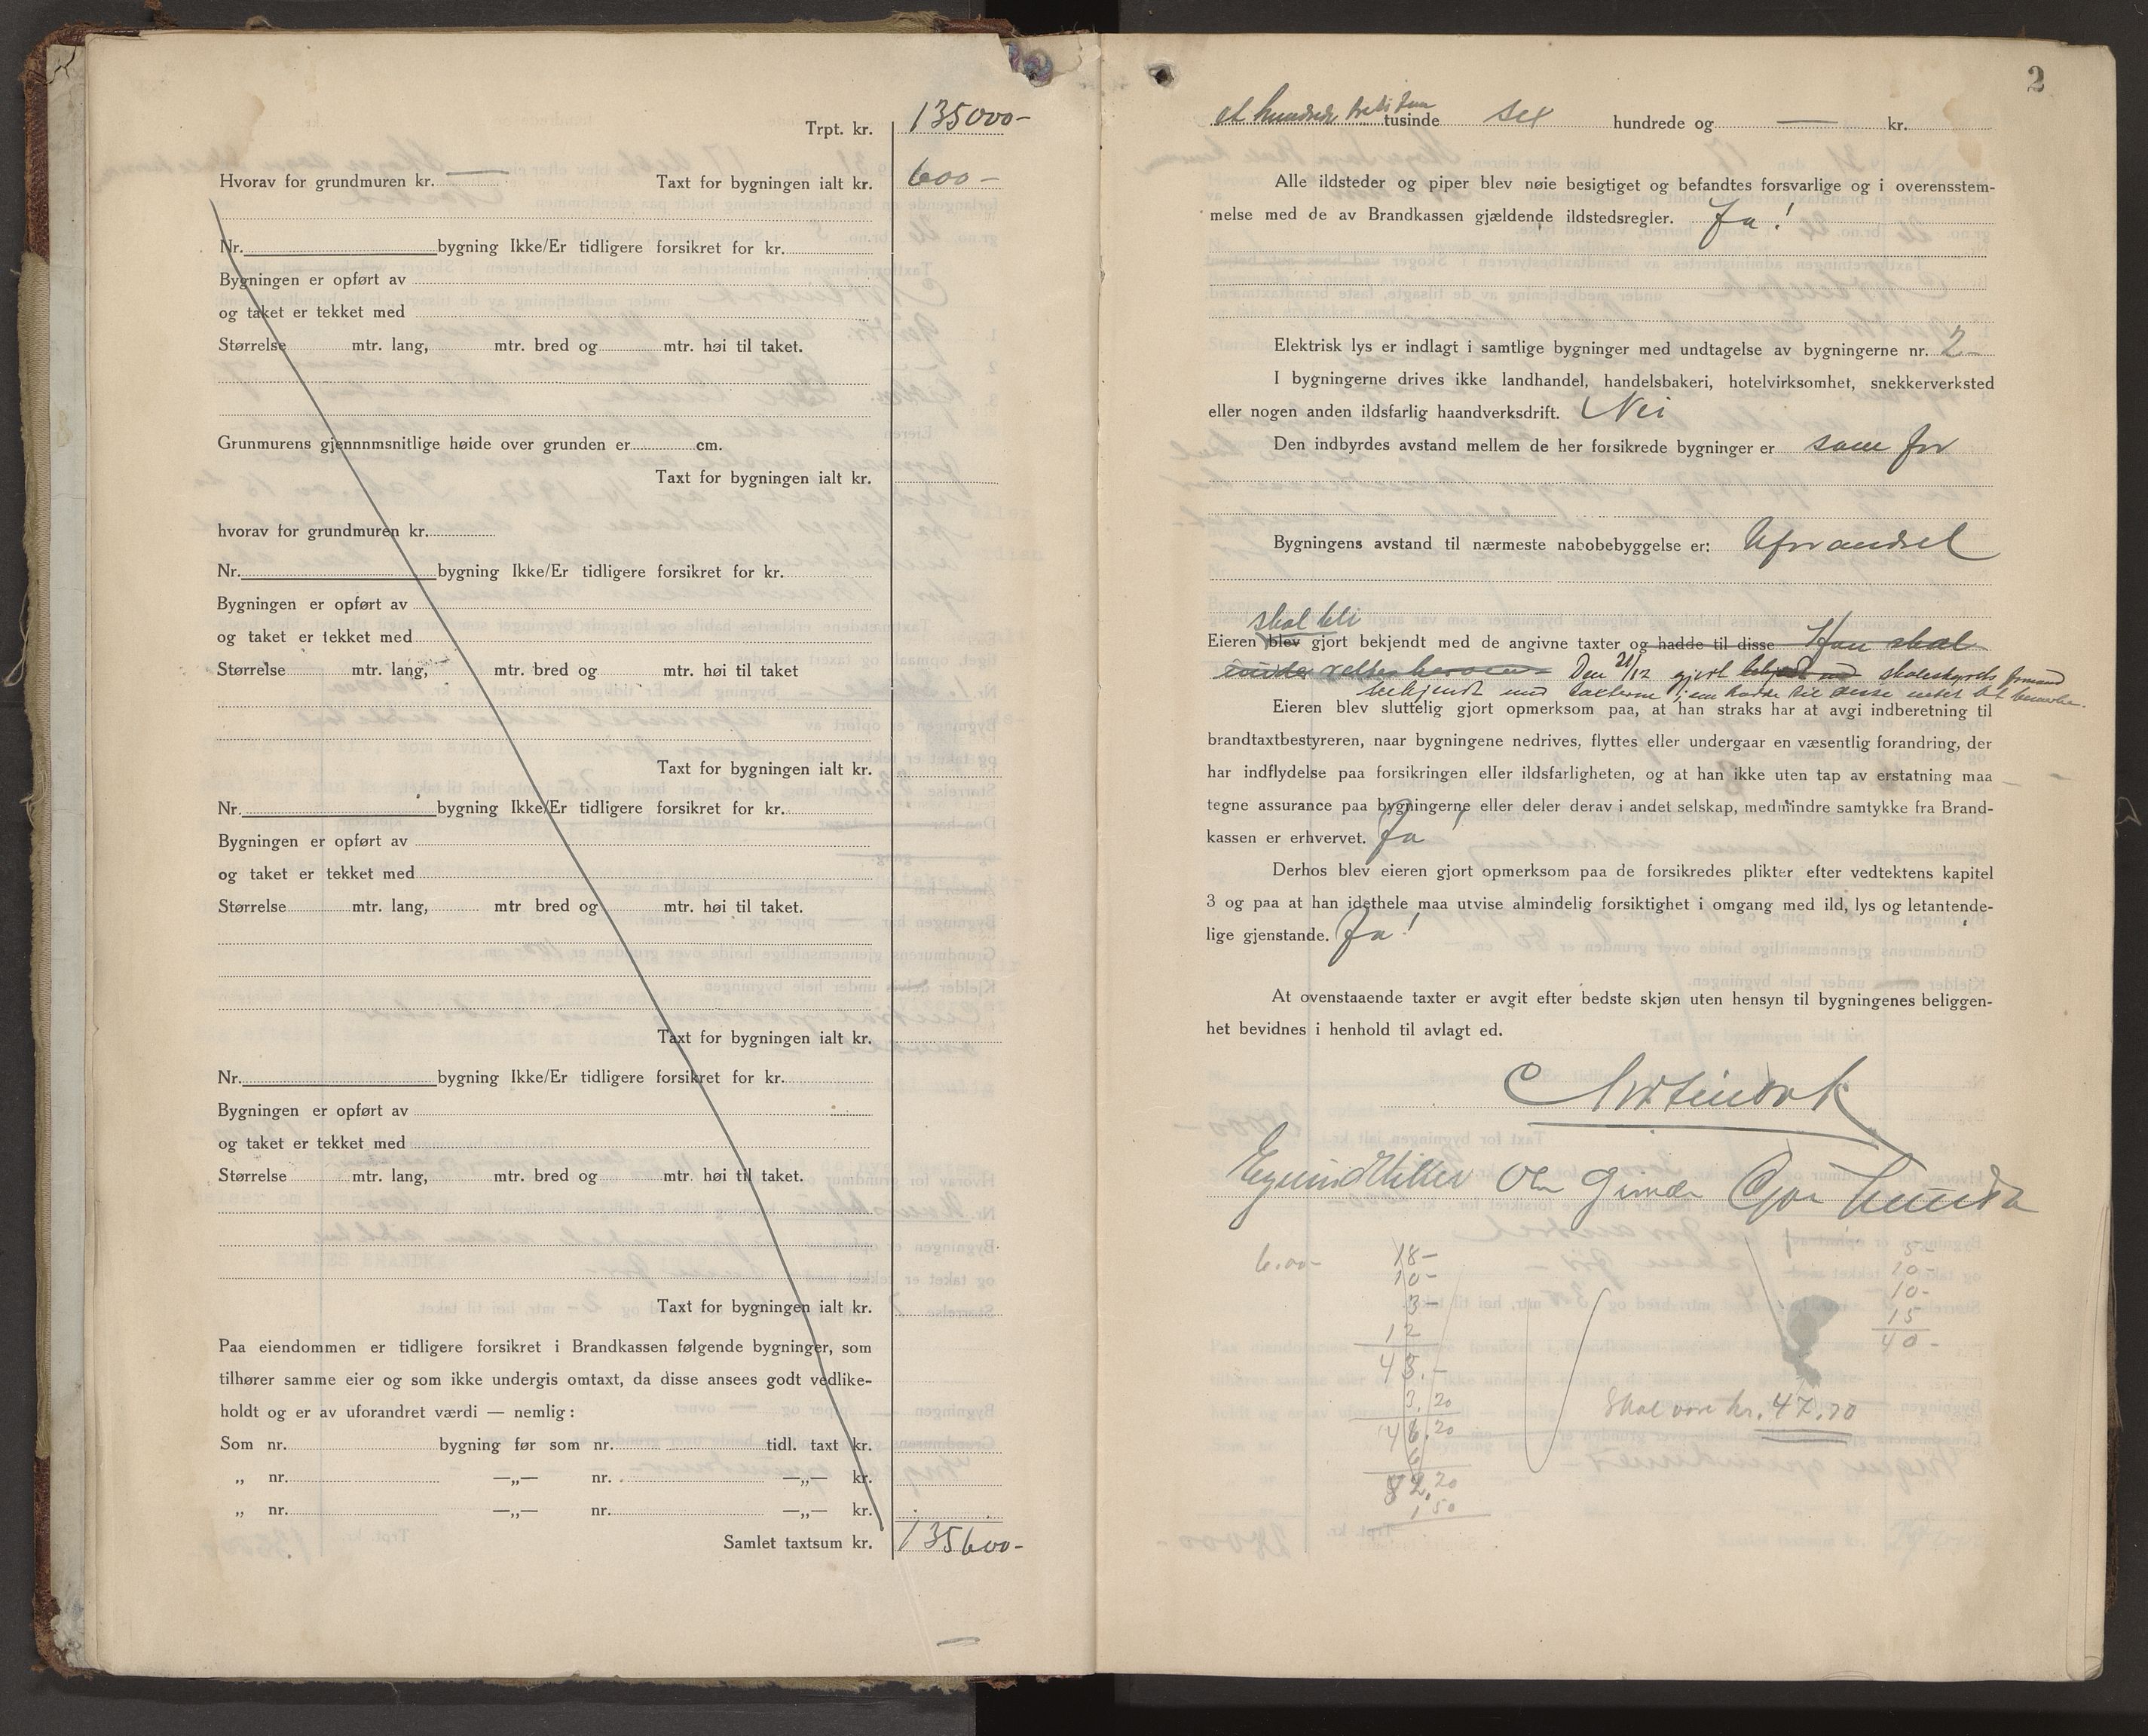 Trpt. kr. 135000-
Hvorav for grundmuren kr. — Taxt for bygningen ialt kr. 600-
Nr. bygning Ikke/Er tidligere forsikret for kr.
Bygningen er opført av
og taket er tekket med
Størrelse mtr. lang, mtr. bred og mtr. høi til taket.
Grunmurens gjennnmsnitlige høide over grunden er cm.
Taxt for bygningen ialt kr.
hvorav for grundmuren kr.
Nr. bygning Ikke/Er tidligere forsikret for kr.
Bygningen er opført av
og taket er tekket med
Størrelse mtr. lang, mtr. bred og mtr. høi til taket
Taxt for bygningen ialt kr.
Nr. bygning Ikke/Er tidligere forsikret for kr.
Bygningen er opført av
og taket er tekket med
Størrelse mtr. lang, mtr bred og mtr. høi til taket.
Taxt for bygningen ialt kr.
Nr. bygning Ikke/Er tidligere forsikret for kr.
Bygningen er opført av
og taket er tekket med
Størrelse mtr. lang, mtr. bred og mtr. høi til taket.
Taxt for bygningen ialt kr.
Paa eiendommen er tidligere forsikret i Brandkassen følgende bygninger, som
tilhører samme eier og som ikke undergis omtaxt, da disse ansees godt vedlike-
holdt og er av uforandret værdi — nemlig:
Som nr. bygning før som nr. tidl. taxt kr.
„ nr. —„— nr. —„— kr.
„ nr. —„— nr. —„— kr.
Samlet taxtsum kr. 135600-
2
et hundrede tusinde sex hundrede og — kr.
Alle ildsteder og piper blev nøie besigtiget og befandtes forsvarlige og i overensstem-
melse med de av Brandkassen gjældende ildstedsregler. Ja!
Elektrisk lys er indlagt i samtlige bygninger med undtagelse av bygningerne nr. 2-
I bygningerne drives ikke landhandel, handelsbakeri, hotelvirksomhet, snekkerverksted
eller nogen anden ildsfarlig haandverksdrift. Nei
Den indbyrdes avstand mellem de her forsikrede bygninger er som før
Bygningens avstand til nærmeste nabobebyggelse er: Uforandret
skal bli
Eieren blev gjort bekjendt med de angivne taxter og hadde til disse Han skal
Den 21/12 gjort skolestyrets formand
bekjendt med taxterne, som hadde til disse intet at bemerke.
Eieren blev sluttelig gjort opmerksom paa, at han straks har at avgi indberetning til
brandtaxtbestyreren, naar bygningene nedrives, flyttes eller undergaar en væsentlig forandring, der
har indflydelse paa forsikringen eller ildsfarligheten, og at han ikke uten tap av erstatning maa
tegne assurance paa bygningerne eller deler derav i andet selskap, medmindre samtykke fra Brand-
kassen er erhvervet. Ja!
Derhos blev eieren gjort opmerksom paa de forsikredes plikter efter vedtektens kapitel
3 og paa at han idethele maa utvise almindelig forsiktighet i omgang med ild, lys og letantende-
lige gjenstande. Ja!
At ovenstaaende taxter er avgit efter bedste skjøn uten hensyn til bygningenes beliggen-
het bevidnes i henhold til avlagt ed.
6.00-
18-
10-
3-
12
43.-
3.20
46.20
6
52.20
1.50
5-
10-
10-
15
40-
Skal være kr. 47.70